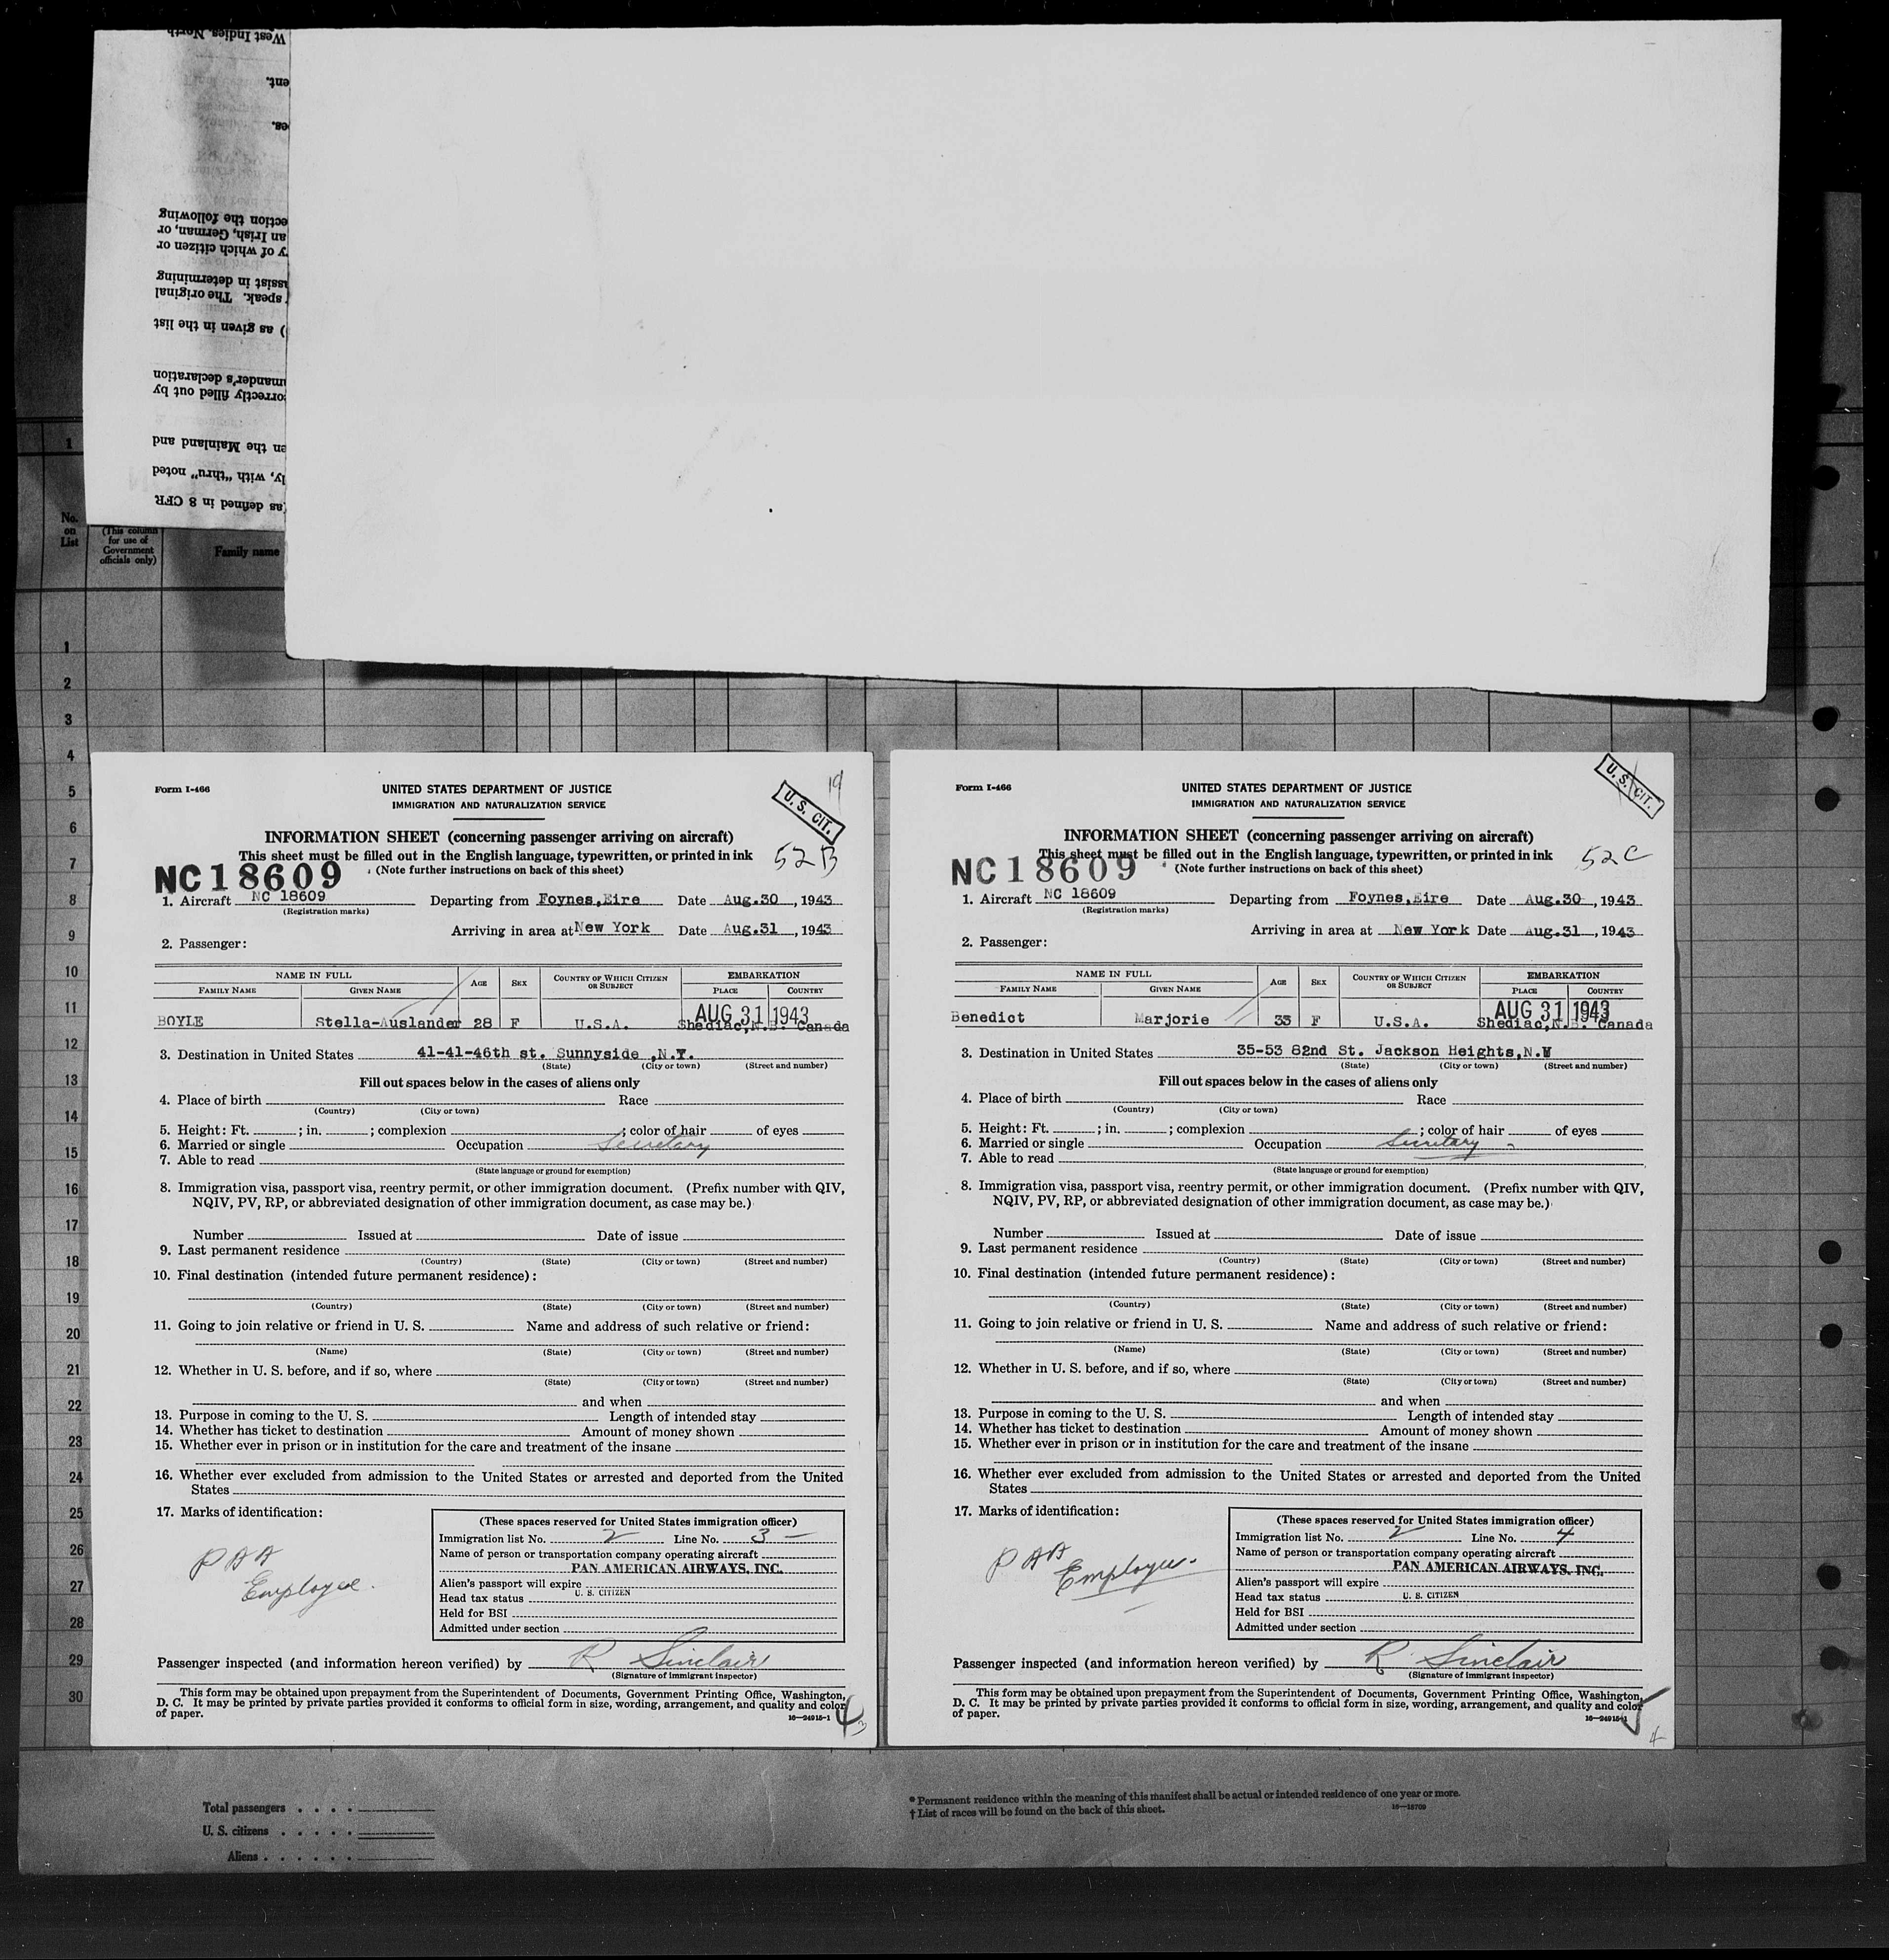 West Indies, North
ent.
es.
ection the following
an Irish, German, or
y of which citizen or
assist in determining
speak. The original
) as given in the list
mander's declaration
orrectly filled out by
en the Mainland and
ly, with "thru" noted
(as defined in 8 CFR
1
No. on List
(This column for use of Government officials only)
Family name
1
2
3
4
5
6
7
8
9
10
11
12
13
14
15
16
17
18
19
20
21
22
23
24
25
26
27
28
29
30
Form I-466
UNITED STATES DEPARTMENT OF JUSTICE
IMMIGRATION AND NATURALIZATION SERVICE
19
U. S. CIT.
INFORMATION SHEET (concerning passenger arriving on aircraft)
This sheet must be filled out in the English language, typewritten, or printed in ink
52B
NC18609
(Note further instructions on back of this sheet)
1. Aircraft NC 18609 Departing from Foynes,Eire Date Aug.30, 1943
(Registration marks)
Arriving in area at New York Date Aug.31, 1943
2. Passenger:
NAME IN FULL AGE SEX COUNTRY OF WHICH CITIZEN OR SUBJECT EMBARKATION
FAMILY NAME GIVEN NAME PLACE COUNTRY
AUG 31 1943
BOYLE Stella-Auslander 28 F U.S.A. Shediac,N.B. Canada
3. Destination in United States 41-41-46th st. Sunnyside ,N.Y.
(State) (City or town) (Street and number)
Fill out spaces below in the cases of aliens only
4. Place of birth Race
(Country) (City or town)
5. Height: Ft. ; in. ; complexion ; color of hair of eyes
6. Married or single Occupation Secretary
7. Able to read
(State language or ground for exemption)
8. Immigration visa, passport visa, reentry permit, or other immigration document. (Prefix number with QIV,
NQIV, PV, RP, or abbreviated designation of other immigration document, as case may be.)
Number Issued at Date of issue
9. Last permanent residence
(Country) (State) (City or town) (Street and number)
10. Final destination (intended future permanent residence):
(Country) (State) (City or town) (Street and number)
11. Going to join relative or friend in U. S. Name and address of such relative or friend:
(Name) (State) (City or town) (Street and number)
12. Whether in U. S. before, and if so, where
(State) (City or town) (Street and number)
and when
13. Purpose in coming to the U. S. Length of intended stay
14. Whether has ticket to destination Amount of money shown
15. Whether ever in prison or in institution for the care and treatment of the insane
16. Whether ever excluded from admission to the United States or arrested and deported from the United
States
17. Marks of identification:
PAA
Employee.
(These spaces reserved for United States immigration officer)
Immigration list No. 2 Line No. 3 —
Name of person or transportation company operating aircraft
PAN AMERICAN AIRWAYS, INC.
Alien's passport will expire
U. S. CITIZEN
Head tax status
Held for BSI
Admitted under section
Passenger inspected (and information hereon verified) by R Sinclair
(Signature of immigrant inspector)
This form may be obtained upon prepayment from the Superintendent of Documents, Government Printing Office, Washington,
D. C. It may be printed by private parties provided it conforms to official form in size, wording, arrangement, and quality and color
of paper.
16—24915-1
3
Form I-466
UNITED STATES DEPARTMENT OF JUSTICE
IMMIGRATION AND NATURALIZATION SERVICE
U. S. CIT.
INFORMATION SHEET (concerning passenger arriving on aircraft)
This sheet must be filled out in the English language, typewritten, or printed in ink
52C
NC18609
(Note further instructions on back of this sheet)
1. Aircraft NC 18609 Departing from Foynes,Eire Date Aug.30, 1943
(Registration marks)
Arriving in area at New York Date Aug.31, 1943
2. Passenger:
NAME IN FULL AGE SEX COUNTRY OF WHICH CITIZEN OR SUBJECT EMBARKATION
FAMILY NAME GIVEN NAME PLACE COUNTRY
AUG 31 1943
Benedict Marjorie 33 F U.S.A. Shediac,N.B. Canada
3. Destination in United States 35-53 82nd St. Jackson Heights,N.Y
(State) (City or town) (Street and number)
Fill out spaces below in the cases of aliens only
4. Place of birth Race
(Country) (City or town)
5. Height: Ft. ; in. ; complexion ; color of hair of eyes
6. Married or single Occupation Secretary
7. Able to read
(State language or ground for exemption)
8. Immigration visa, passport visa, reentry permit, or other immigration document. (Prefix number with QIV,
NQIV, PV, RP, or abbreviated designation of other immigration document, as case may be.)
Number Issued at Date of issue
9. Last permanent residence
(Country) (State) (City or town) (Street and number)
10. Final destination (intended future permanent residence):
(Country) (State) (City or town) (Street and number)
11. Going to join relative or friend in U. S. Name and address of such relative or friend:
(Name) (State) (City or town) (Street and number)
12. Whether in U. S. before, and if so, where
(State) (City or town) (Street and number)
and when
13. Purpose in coming to the U. S. Length of intended stay
14. Whether has ticket to destination Amount of money shown
15. Whether ever in prison or in institution for the care and treatment of the insane
16. Whether ever excluded from admission to the United States or arrested and deported from the United
States
17. Marks of identification:
PAA
Employee.
(These spaces reserved for United States immigration officer)
Immigration list No. 2 Line No. 4
Name of person or transportation company operating aircraft
PAN AMERICAN AIRWAYS, INC.
Alien's passport will expire
U. S. CITIZEN
Head tax status
Held for BSI
Admitted under section
Passenger inspected (and information hereon verified) by R Sinclair
(Signature of immigrant inspector)
This form may be obtained upon prepayment from the Superintendent of Documents, Government Printing Office, Washington,
D. C. It may be printed by private parties provided it conforms to official form in size, wording, arrangement, and quality and color
of paper.
16—24915-1
4
Total passengers . . . .
U. S. citizens . . . . .
Aliens . . . . . .
* Permanent residence within the meaning of this manifest shall be actual or intended residence of one year or more.
† List of races will be found on the back of this sheet.
16—18709